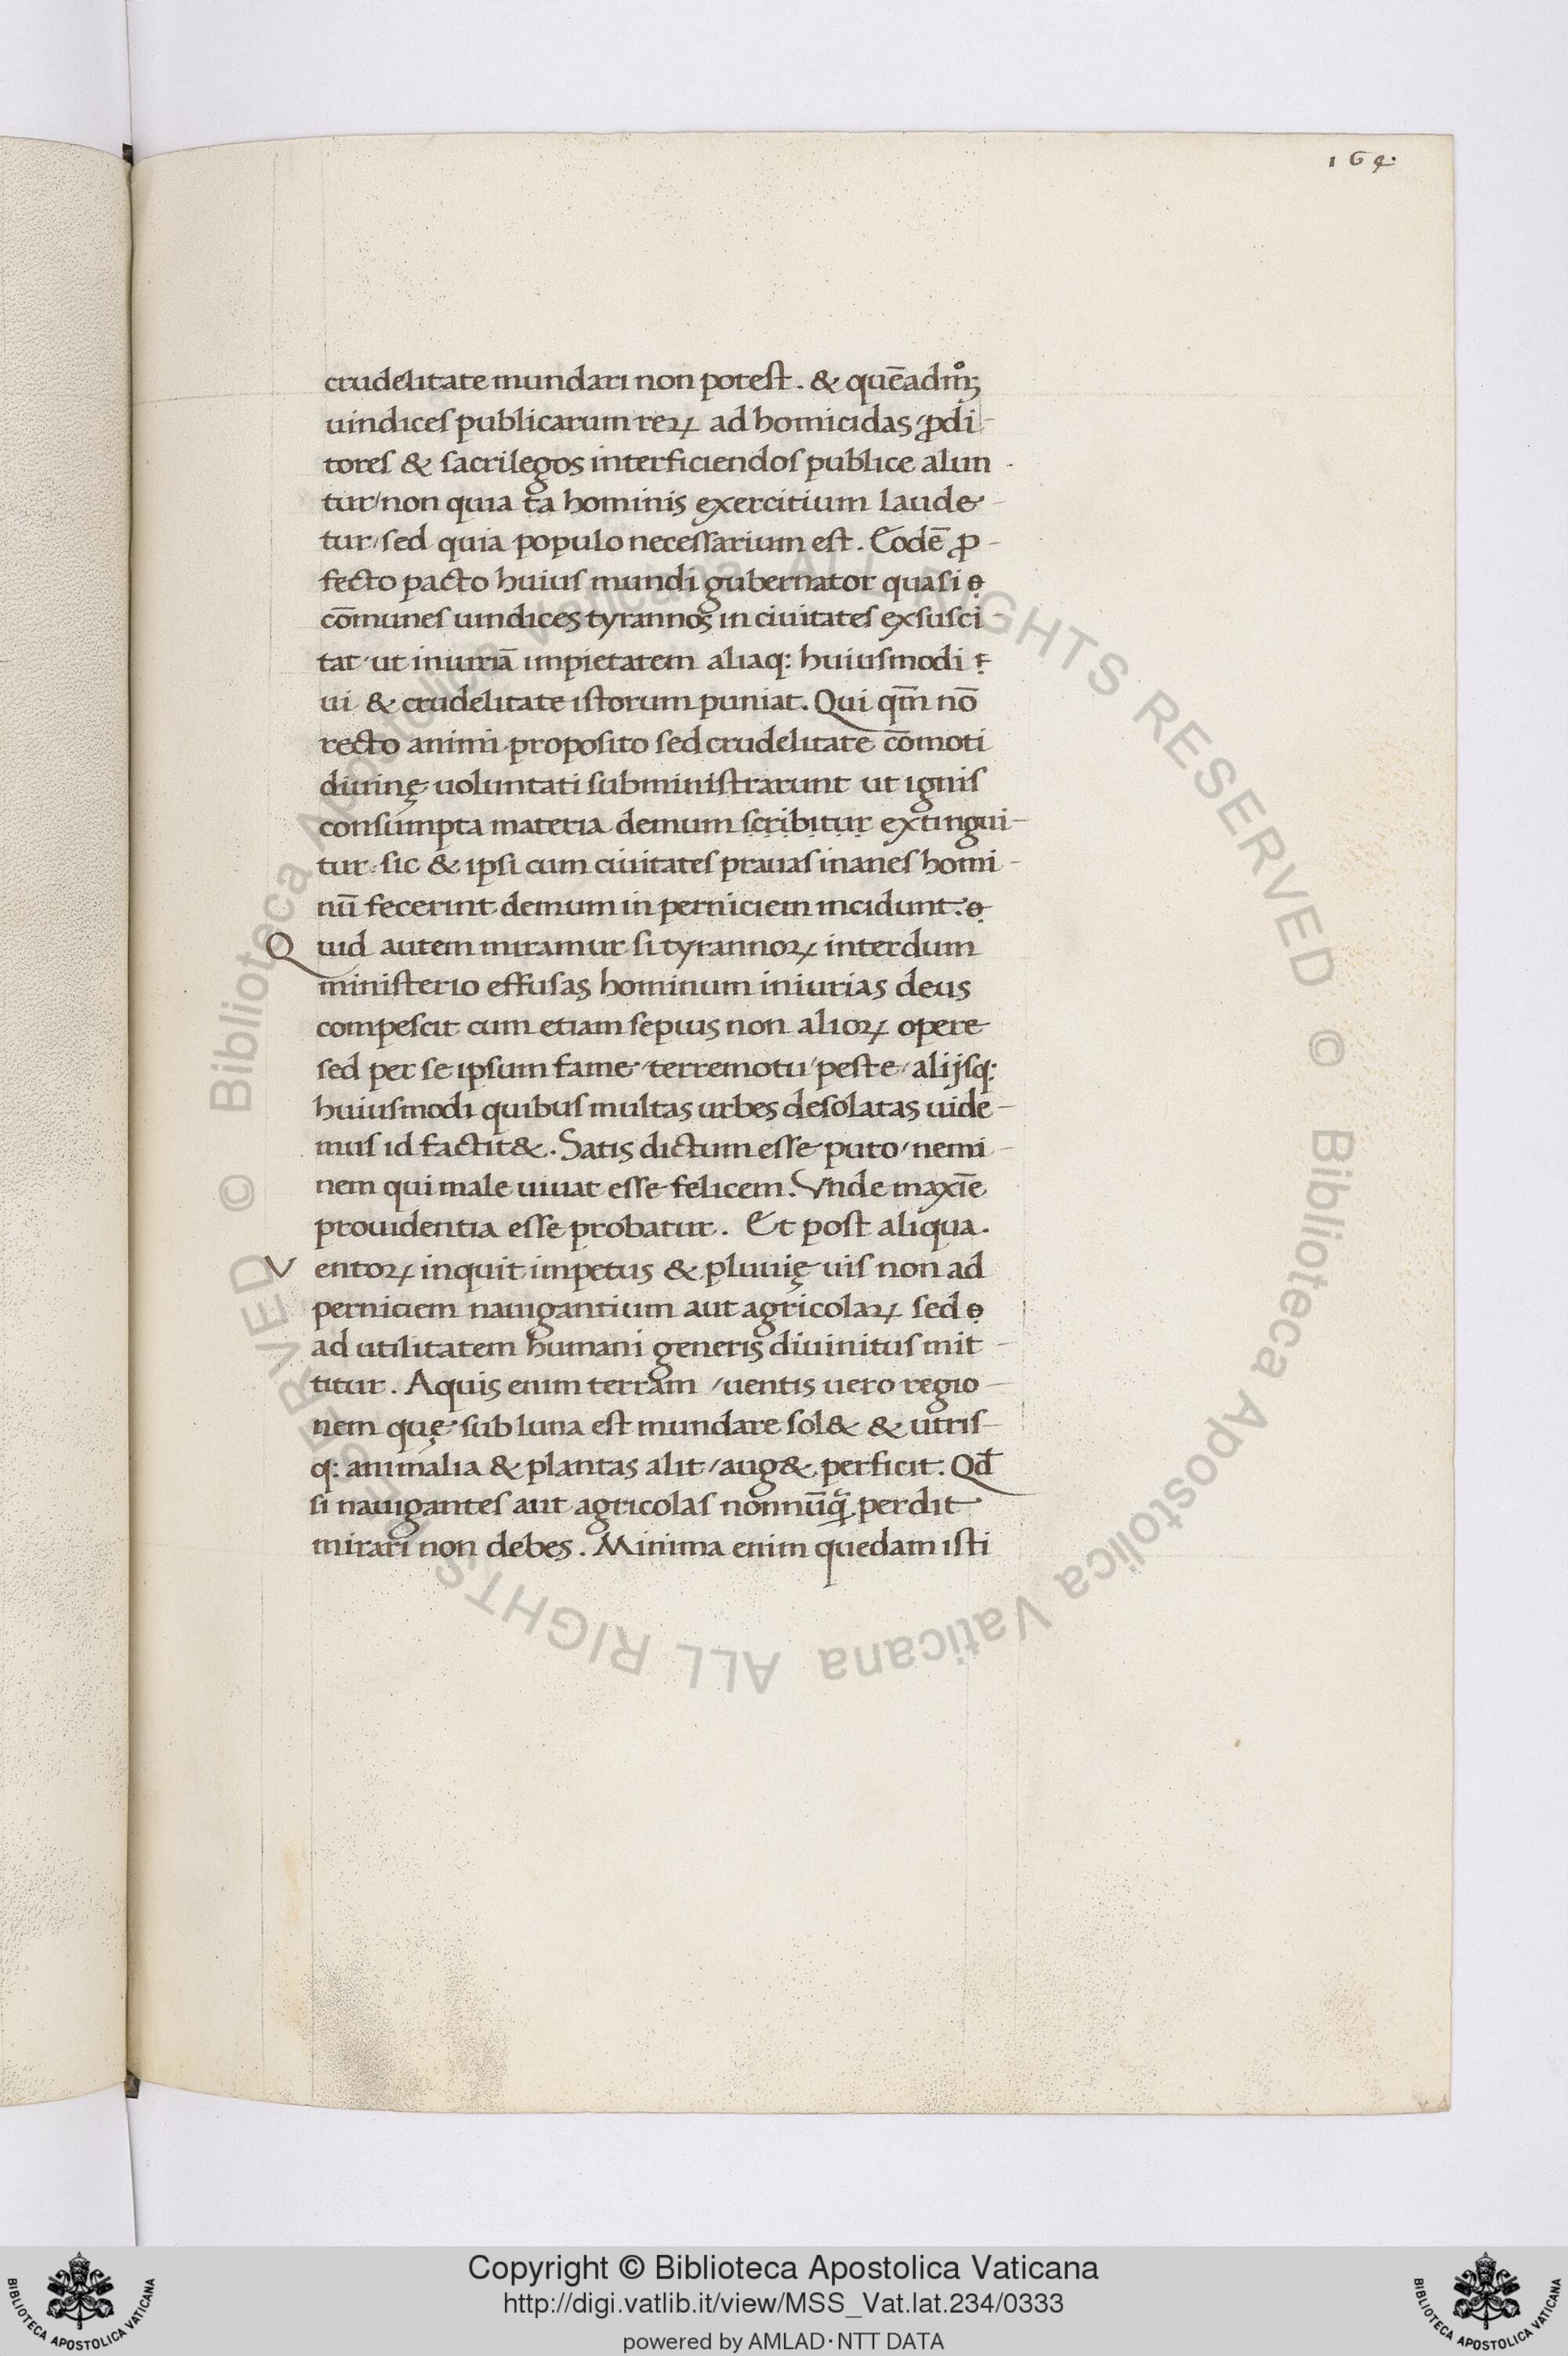 164.
crudelitate mundari non potest. & quēadmͦꝫ
uindices publicarum reꝝ ad homicidas / ꝓdi-
tores & sacrilegos interficiendos publice alun-
tur / non quia ta hominis exercitium laude-
tur / sed quia populo necessarium est. Eodē ꝓ-
fecto pacto huius mundi gubernator quasi
cōmunes uindices tyrannos in ciuitates exsusci-
tat / ut iniuriā impietatem aliaq: huiusmodi
ui & crudelitate istorum puniat. Qui qm̄ nō
recto animi proposito sed crudelitate cōmoti
diuinę uoluntati subministrarunt ut ignis
consumpta materia demum scribitur extingui-
tur. sic & ipsi cum ciuitates prauas inanes homi-
nū fecerint demum in perniciem incidunt.
Quid autem miramur si tyrannoꝝ interdum
ministerio effusas hominum iniurias deus
compescit cum etiam sepius non alioꝝ opere
sed per se ipsum fame / terremotu / peste / alijsq:
huiusmodi quibus multas urbes desolatas uide-
mus id factit&. Satis dictum esse puto / nemi-
nem qui male uiuat esse felicem. Vnde maxīe
prouidentia esse probatur. Et post aliqua.
Ventoꝝ inquit impetus & pluuię uis non ad
perniciem nauigantium aut agricolaꝝ sed
ad utilitatem humani generis diuinitus mit-
titur. Aquis enim terram / uentis uero regio-
nem quę sub luna est mundare sol& & utris-
q: animalia & plantas alit / aug& perficit. Qd̄
si nauigantes aut agricolas nonnūqᷓ perdit
mirari non debes. Minima enim quedam isti
© Biblioteca Apostolica Vaticana ALL RIGHTS RESERVED © Biblioteca Apostolica Vaticana ALL RIGHTS RESERVED
Copyright © Biblioteca Apostolica Vaticana
http://digi.vatlib.it/view/MSS_Vat.lat.234/0333
powered by AMLAD·NTT DATA
BIBLIOTECA APOSTOLICA VATICANA
BIBLIOTECA APOSTOLICA VATICANA